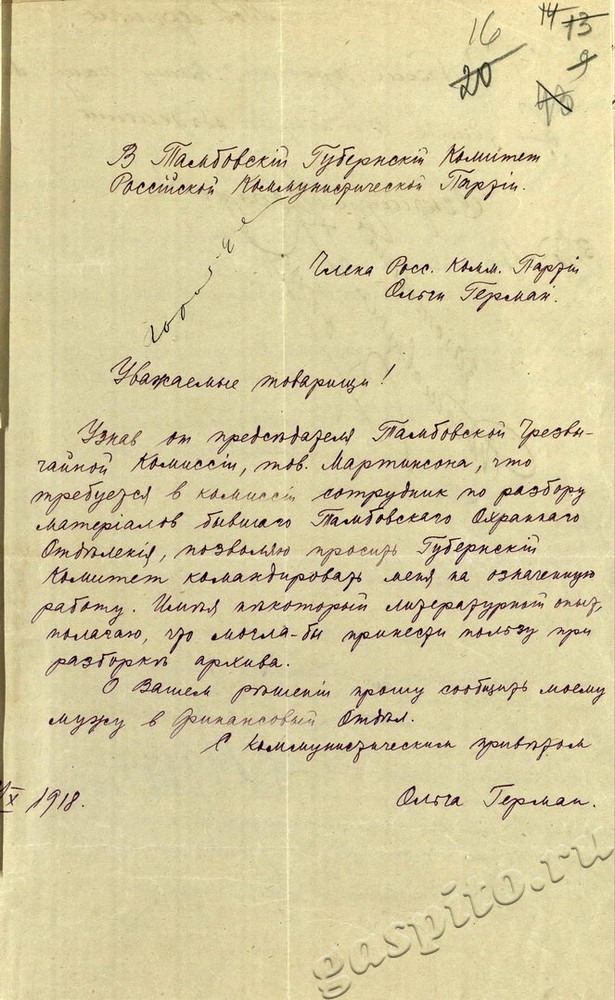 16
20
14 13
9
В Тамбовскій Губернскій Комитет
Россійской Коммунистической Партіи.
Члена Росс. Комм. Партіи
Ольги Герман.
Уважаемые товарищи!
Узнав от предсѣдателя Тамбовской Чрезвы-
чайной Комиссіи, тов. Мартинсона, что
требуется в комиссіи сотрудник по разбору
матеріалов бывшаго Тамбовскаго Охраннаго
Отдѣленія, позволяю просить Губернскій
Комитет командировать меня на означенную
работу. Имѣя нѣкоторый литературный опыт,
полагаю, что могла-бы принести пользу при
разборкѣ архива.
О Вашем рѣшеніи прошу сообщить моему
мужу в Финансовый Отдѣл.
С коммунистическим привѣтом
X 1918.
Ольга Герман.
gaspito.ru